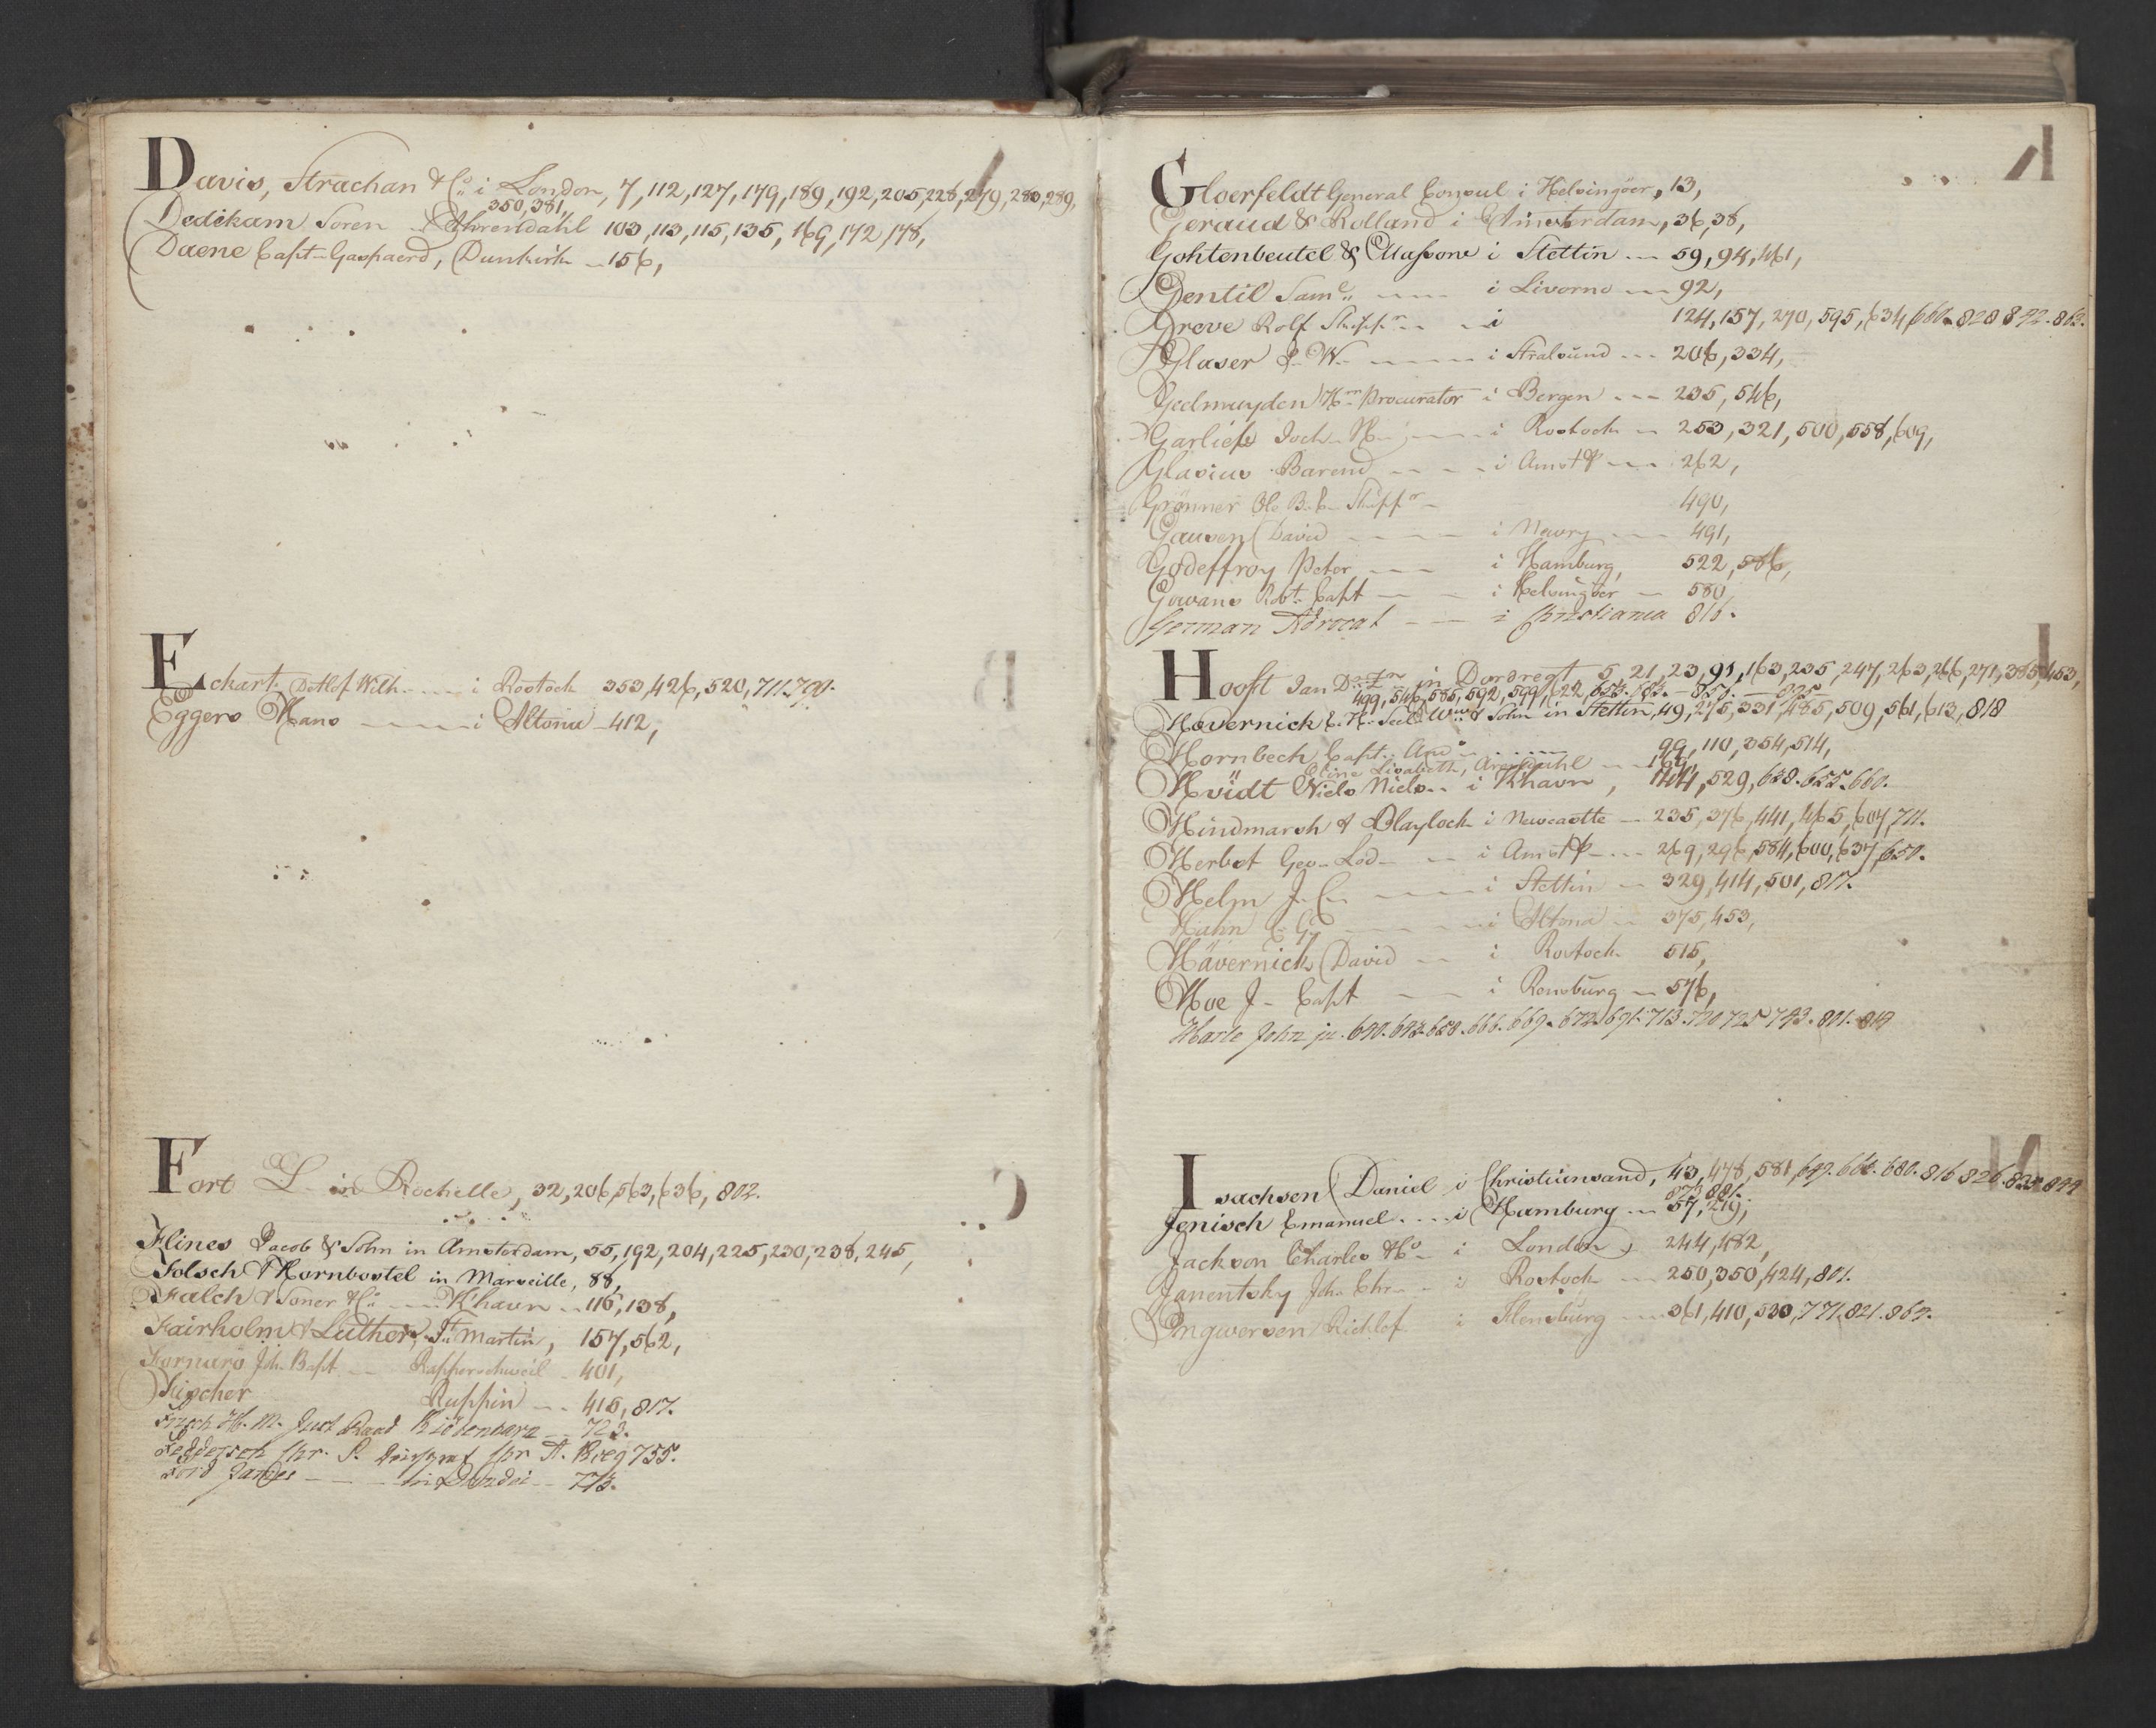 Davis, Strachan & Co: i London, 7, 112, 127, 179, 189, 192, 205, 228, 279, 280, 289,
350, 381,
Dedekam Soren Ahrendahl 103, 113, 115, 135, 169, 172, 178,
Daene Capt Gaspaerd, Dunkirk 156,
Eckart Detlef Wilh. i Rostock 353, 426, 520, 711. 790.
Eggers Hans i Altona 412,
Fort L in Rochelle, 32, 206, 563, 636, 802.
Flines Jacob & Sohn in Amsterdam, 55, 192, 204, 225, 230, 238, 245,
Folsch & Hornbostel in Marseille, 88,
Falch & Soner & Co: Khavn 116, 138,
Fairholm & Luther, St. Martin, 157, 562,
Fornaro Joh. Bapt Rapperschweil 401,
Fischer Ruppin 415, 817.
H. M. Just Raad 723.
Feddersen Chr. P. Chr A. Breg 755.
Ford James in Dundei 773.
Gloerfeldt General Consul i Helsingöer, 13,
Geraud & Rolland i Amsterdam, 36, 38,
Gohtenbeutel & Massone i Stettin 59, 94, 461,
Gentil Saml i Livorno 92,
Greve Rolf Skippr i 124, 157, 270, 595, 634, 680. 828 842. 862.
Glaser i Stralsund 206, 334,
Geelmuyden Hrr Procurator i Bergen 235, 546,
Garlieb Joch. H. i Rostock 253, 321, 500, 558, 609,
Glasius Barend i Amst 262,
Grönner Ole Skippr 490,
Gausen David i Newry 491,
Godeffroy Peter i Hamburg, 522, 586,
Gowans Robt. Capt i Helsingöer 580,
German Advocat i Christiania 816.
Hooft Jan in Dordregt 5, 21, 23, 91, 163, 235, 247, 263, 266, 271, 385, 453,
499, 546, 585, 592, 599, 622 653.
Hovernick & Sohn in Stettin, 49, 275, 331, 485, 509, 561, 613, 818
Hornbech Capt. And 99, 110, 354, 514,
Oline Lisabeth, Arendahl 199,
Hvidt Niels Niels i Khavn, 144, 529, 628. 655. 660.
Hindmarsh & Blaylock i Newcastle 235, 376, 441, 465, 607, 711.
Herbst Geo. Lod i Amst 269, 296, 584, 600, 637, 650.
Helm J. C. i Stettin 329, 414, 501, 817.
Hahn C. G. i Altona 375, 453,
Hävernick David i Rostock 515,
Hoe J Capt i Rensburg 576,
Harle John ju. 640. 643. 658. 666. 669. 672. 691. 713. 720 725 743. 801. 819
Isachsen Daniel i Christiansand, 43, 478, 581, 649. 668. 680. 816 826.
873 881.
Jenisch Emanuel i Hamburg 57, 219,
Jackson Charles & Co i London, 244, 482,
Janentzky Joh. Chr. i Rostock 250, 350, 424, 801.
Ingwersen Richlef i Flensburg 361, 410, 530, 771, 821. 864.